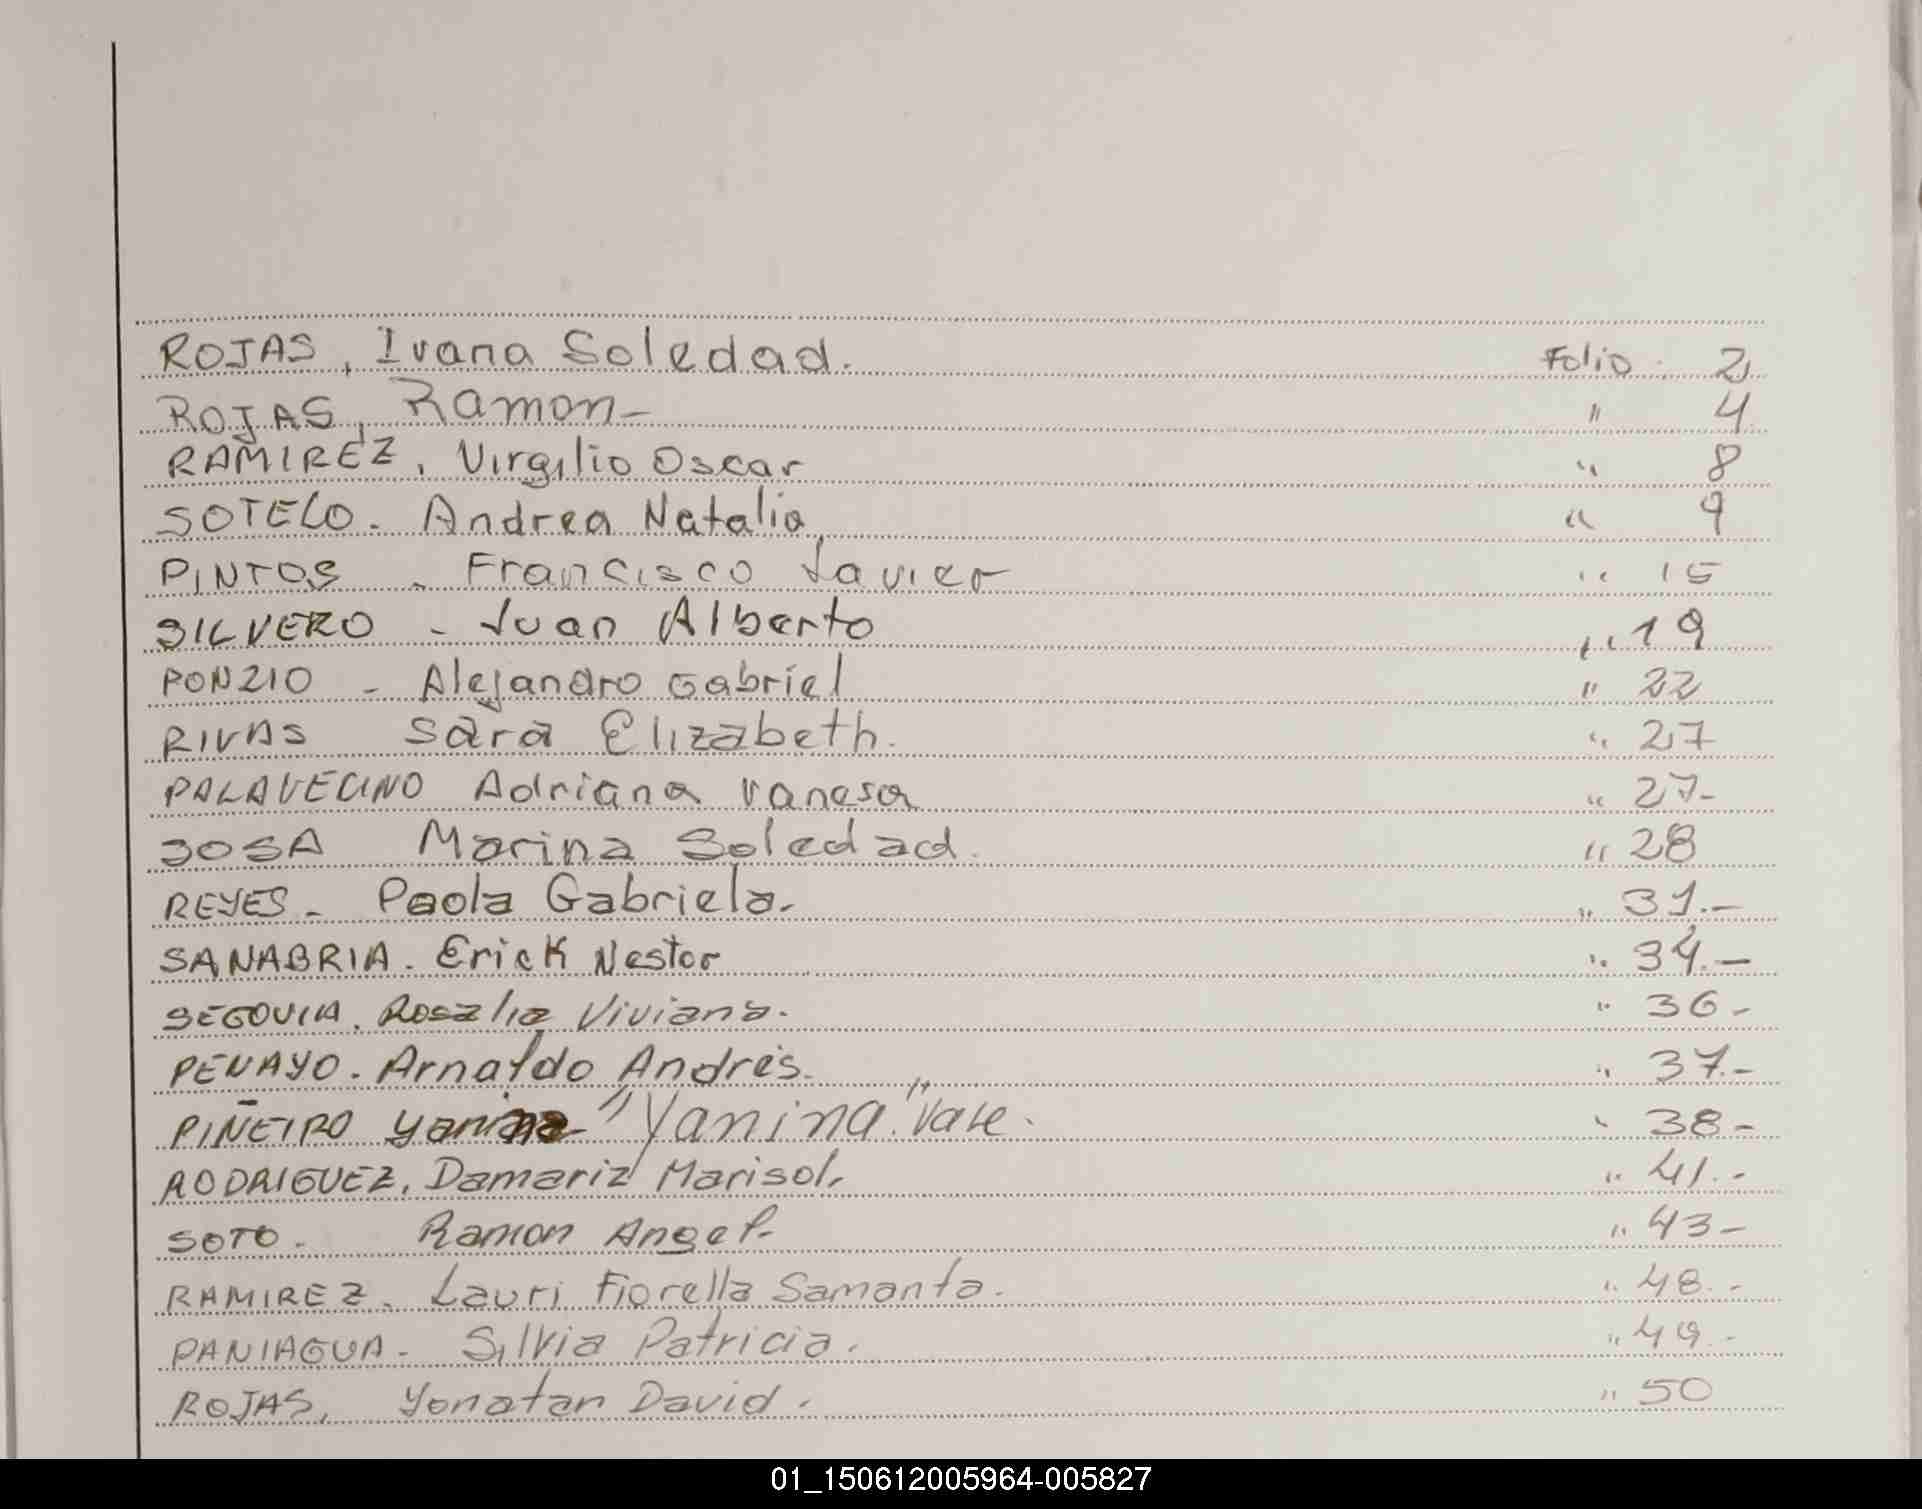 ROJAS, Ivana Soledad. Folio. 2
ROJAS, Ramon- " 4
RAMIREZ, Virgilio Oscar " 8
SOTELO. Andrea Natalia " 9
PINTOS - Francisco Javier " 15
SILVERO - Juan Alberto " 19
PONZIO - Alejandro Gabriel " 22
RIVAS Sara Elizabeth. " 27
PALAVECINO Adriana Vanesa " 27-
SOSA Marina Soledad. " 28
REYES- Paola Gabriela.- " 31.-
SANABRIA. Erick Nestor " 34.-
SEGOVIA, Rosalia Viviana. " 36-
PENAYO. Arnaldo Andrés. " 37.-
PIÑEIRO Yanina "Yanina" Vale. " 38-
RODRIGUEZ, Damariz Marisol. " 41.-
SOTO. Ramon Angel. " 43-
RAMIREZ. Lauri Fiorella Samanta. " 48.-
PANIAGUA- Silvia Patricia. " 49.-
ROJAS, Yonatan David. " 50
01_150612005964-005827